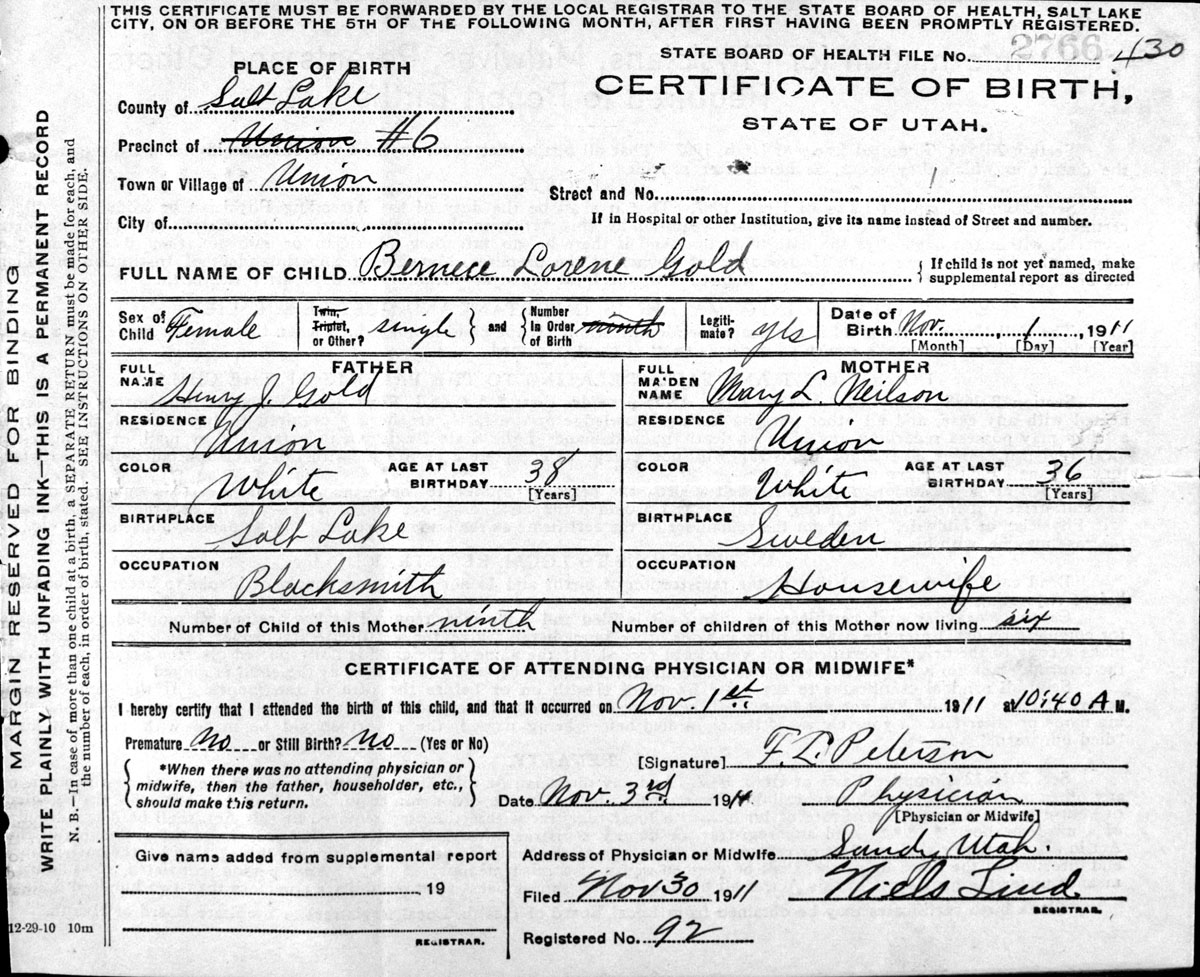 THIS CERTIFICATE MUST BE FORWARDED BY THE LOCAL REGISTRAR TO THE STATE BOARD OF HEALTH, SALT LAKE
CITY, ON OR BEFORE THE 5TH OF THE FOLLOWING MONTH, AFTER FIRST HAVING BEEN PROMPTLY REGISTERED.
STATE BOARD OF HEALTH FILE No. 2766 430
PLACE OF BIRTH
CERTIFICATE OF BIRTH,
STATE OF UTAH.
County of Salt Lake
Precinct of Union #6
Town or Village of Union
Street and No.
City of
If in Hospital or other Institution, give its name instead of Street and number.
FULL NAME OF CHILD Berniece Lorene Gold { If child is not yet named, make
supplemental report as directed
Sex of Child Female Twin, Triplet, or Other? single } and { Number In Order of Birth ninth Legiti-mate? yes Date of Birth Nov. 1, 1911
[Month] [Day] [Year]
FATHER MOTHER
FULL NAME Henry J. Gold FULL MAIDEN NAME Mary L. Neilson
RESIDENCE Union RESIDENCE Union
COLOR White AGE AT LAST BIRTHDAY 38 [Years] COLOR White AGE AT LAST BIRTHDAY 36 [Years]
BIRTHPLACE Salt Lake BIRTHPLACE Sweden
OCCUPATION Blacksmith OCCUPATION Housewife
Number of Child of this Mother ninth Number of children of this Mother now living six
CERTIFICATE OF ATTENDING PHYSICIAN OR MIDWIFE*
I hereby certify that I attended the birth of this child, and that it occurred on Nov. 1st 1911 at 10:40 A M.
Premature no or Still Birth? no (Yes or No)
[Signature] F. L. Peterson
{ *When there was no attending physician or
midwife, then the father, householder, etc.,
should make this return. }
Date Nov. 3rd 1911 Physician
[Physician or Midwife]
Give name added from supplemental report
19
REGISTRAR.
Address of Physician or Midwife Sandy, Utah.
Filed Nov 30 1911 Niels Lind
REGISTRAR.
Registered No. 92
12-29-10 10m
MARGIN RESERVED FOR BINDING
WRITE PLAINLY WITH UNFADING INK—THIS IS A PERMANENT RECORD
N. B.—In case of more than one child at a birth, a SEPARATE RETURN must be made for each, and
the number of each, in order of birth, stated. SEE INSTRUCTIONS ON OTHER SIDE.